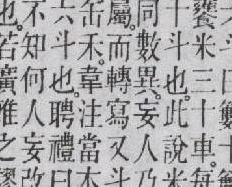 饔米三十車
十斗也此說米
同數異妄人乃
屬而轉寫又斗
缶禾韋注當
六斗也聘禮曰
不知何人妄改
也若廣雅之謬